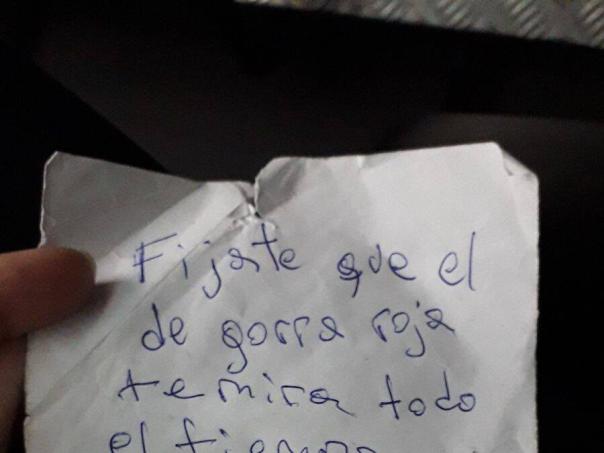 Fijate que el
de gorra roja
te mira todo
el tiempo